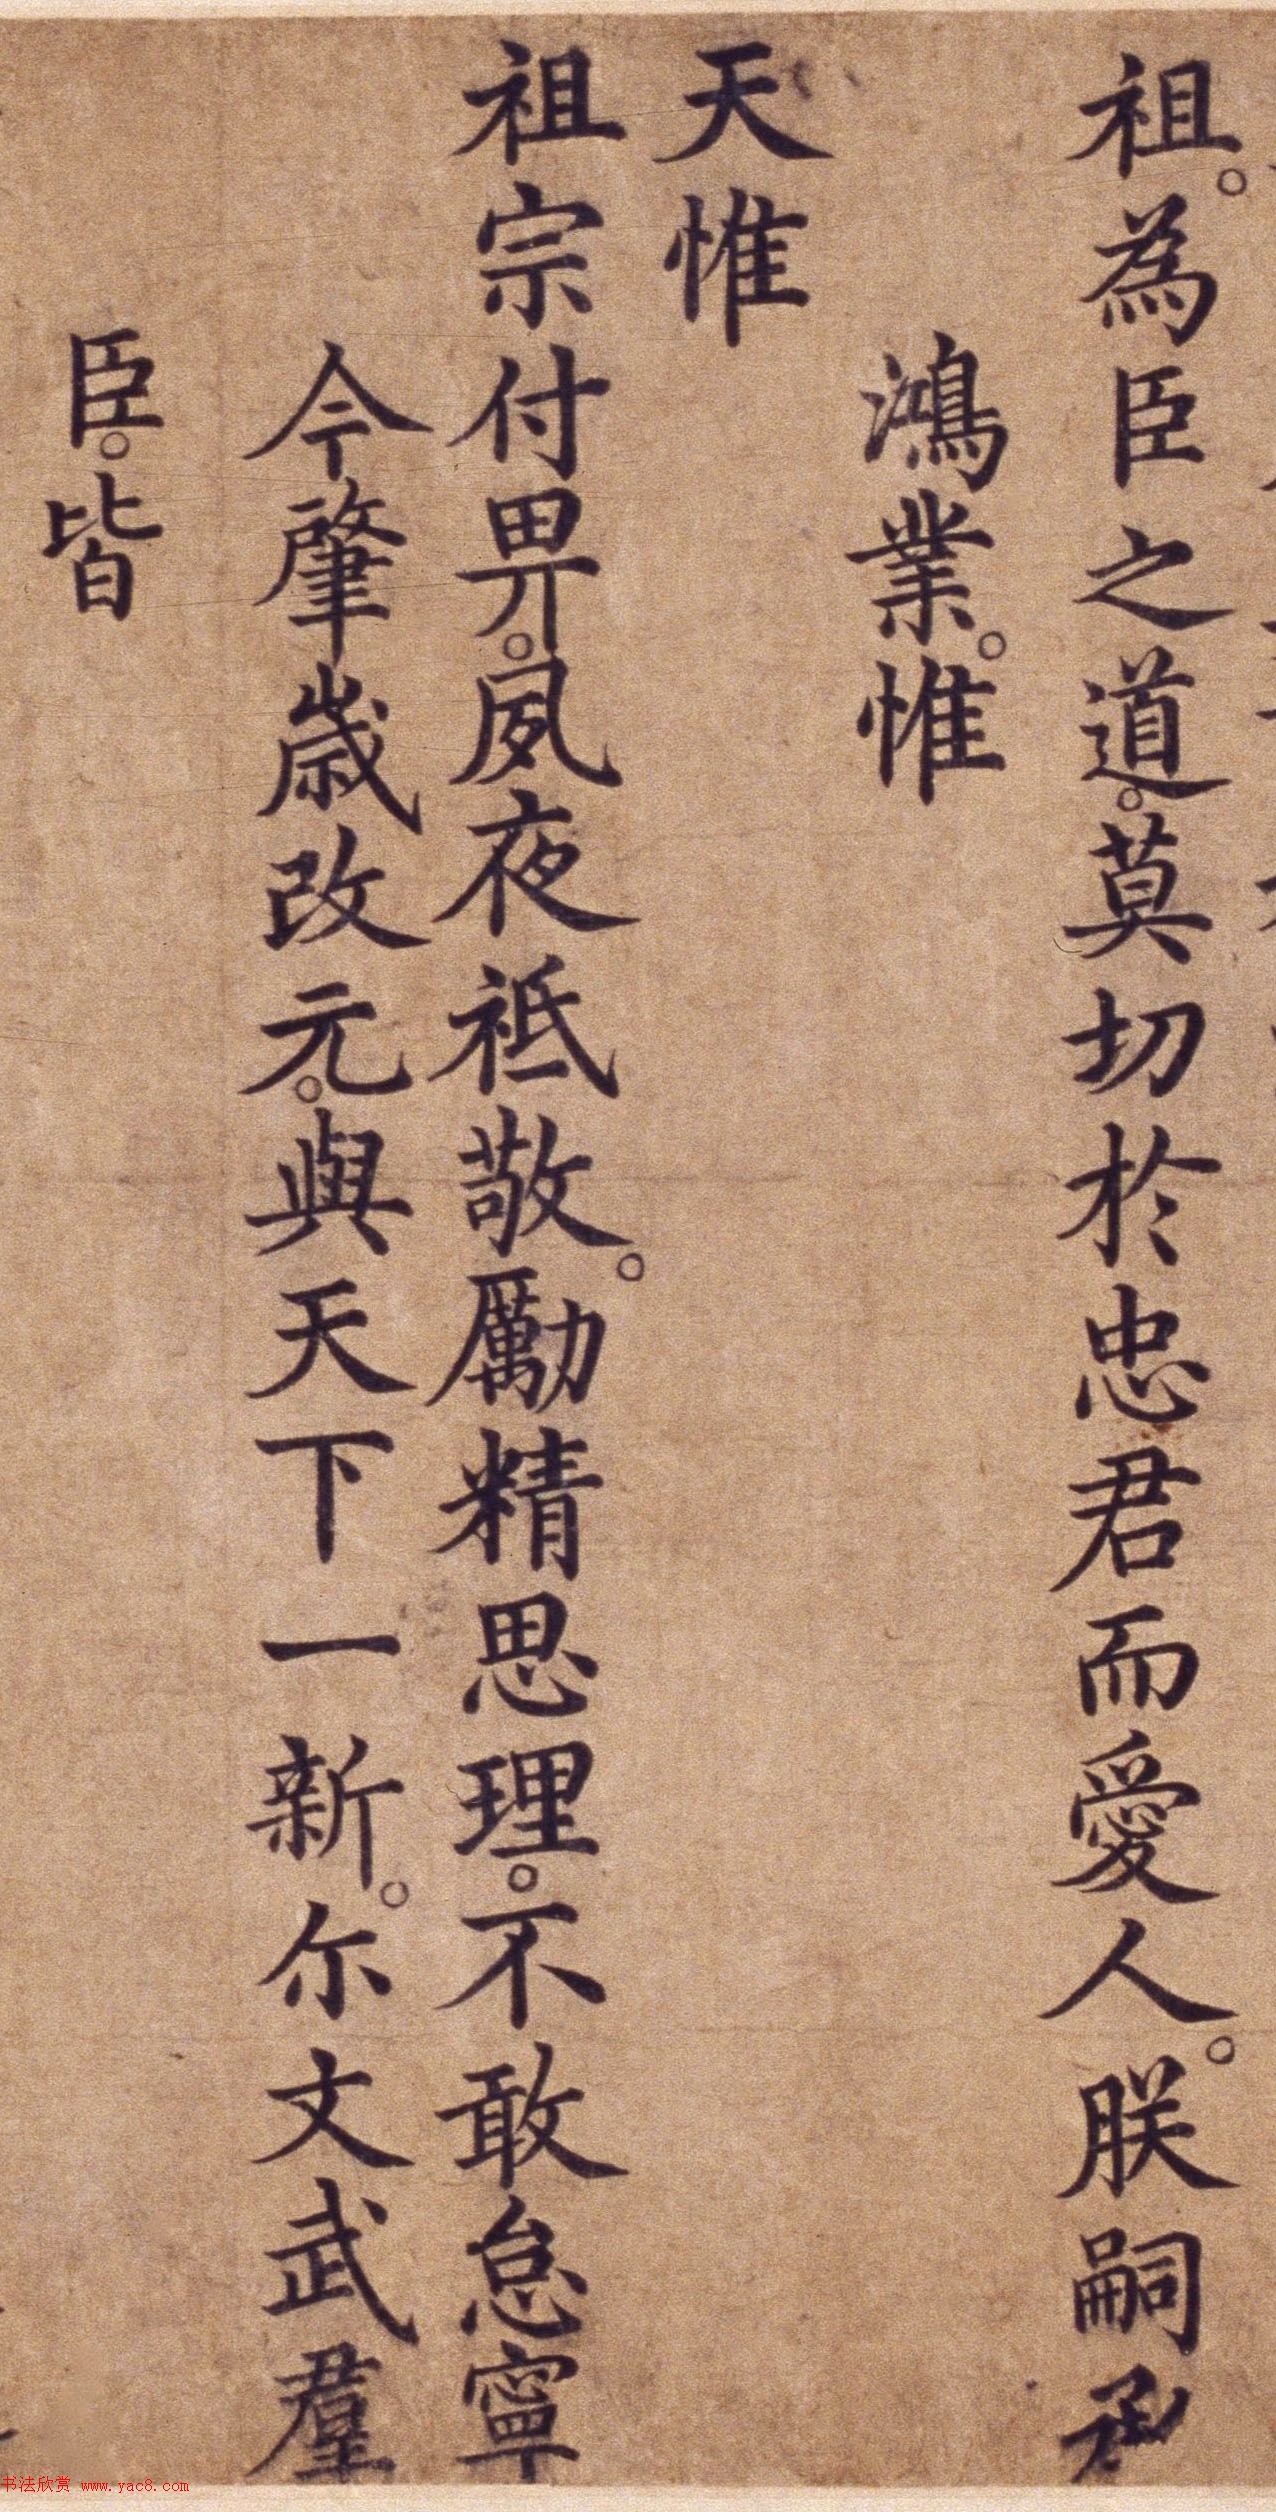 祖。為臣之道。莫切於忠君而愛人。朕嗣承
鴻業。惟
天惟
祖宗付畀。夙夜祗敬。勵精思理。不敢怠寧
今肇歲改元。與天下一新。尔文武羣
臣。皆
书法欣赏 www.yac8.com